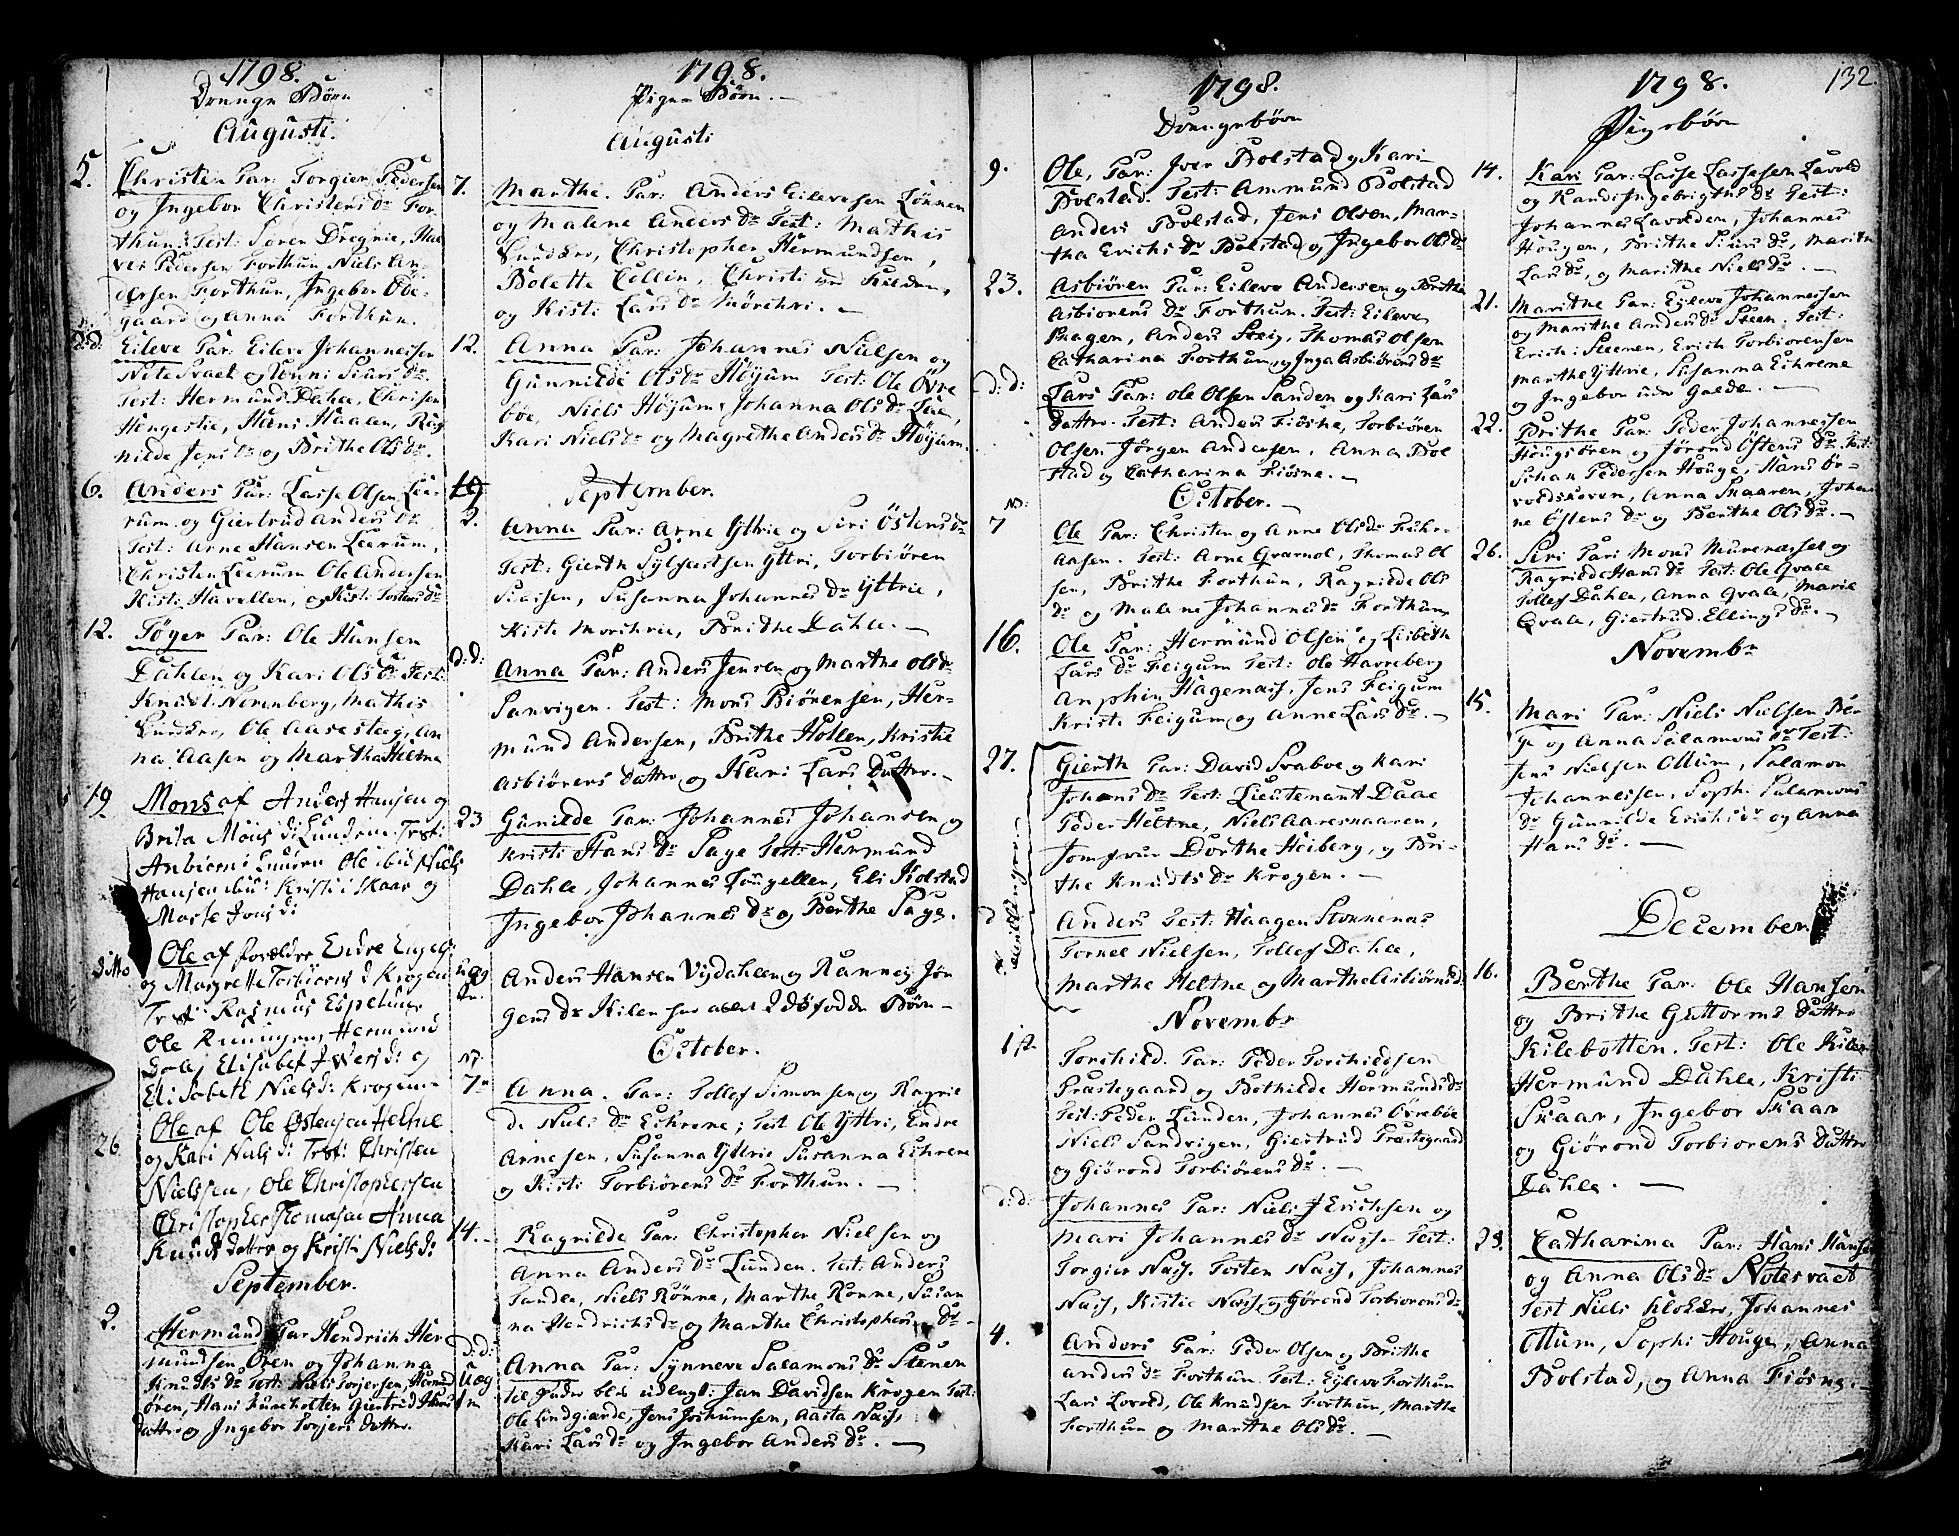 1798.
Drenge Børn
Augusti.
5. Christen Par: Torgier Pedersen
og Ingebor Christens Dr For-
thun. Test: Søren Dregnie, Hal
vei Pedersen Forthun Niels An-
dersen Forthun, Ingebor Øde-
gaard og Anna Forthun.
d:d: Eileve Par: Eileve Johannessen
Notesvaet og Siurs Dr
Test: Hermund Dahle, Christen
Hengestie, Hans Haalen, Rag
nilde Jens Dr og Brithe Ols Dr.
6. Anders Par: Lasse Olsen Lee-
rum og Giertrud Anders Dr
Test: Arne Hansen Leerum,
Christen Leerum Ole Andersen
Kisti Havellen, og Kisti Tostens Dr
12. Tøger Par: Ole Hansen
Dahlen og Kari Ols Dr Test:
Knudt Norenberg, Mathis
Lundero, Ole Aasestag, An
na Aasen og Martha Heltne
19. Mons af Anders Hansen og
Brita Mons di Lunden. Test:
Anbiørn Ole Niels
Hansen Kristi Skaar og
Marte Jons di
ditto Ole af forældre Endre Engels:
og Margrette Torbiørns d Krogen
Test: Rasmus Espelund
Ole Hermund
Dale, Elisabet Iwers di og
Elisabeth Niels di Krogen
26 Ole af Ole Østensen Heltne
og Kari Niels di Test: Christen
Nielsen, Ole Christophersen
Christopher Thomasen Anna
Knuds datter og Kristi Niels di
September.
2. Hermund Par Hendrich Her
mundsen Øren og Johanna
Knudts Dr Test: Niels Torjersen, Hermd
Øren, Hans Giertrud Hans
datter og Ingebor Torjers datter.
1798.
Pige-Børn.
Augusti
7. Marthe. Par: Anders Eilevesen Lønnen
og Malene Anders Dr Test: Mathis
Lundero, Christopher Hermundsen,
Bolette Collin, Christi Fulden,
og Kisti Lars Dr Mørchri.
12. Anna Par: Johannes Nielsen og
Gunnilde Ols Dr Høyum Test: Ole Øvre
bøe, Niels Høyum, Johanna Ols Dr
Kari Niels Dr og Magrethe Anders Dr Høyum.
September.
2. Anna Par: Arne Yttrie og Seri Østens Dr
Test: Gierth Sylfestsen Yttri, Torbiøren
Siursen, Susanna Johannes Dr Yttrie,
Kiste Morchrie, Brithe Dahle.
d:d: Anna Par: Anders Jensen og Marthe Ols Dr
Sanvigen. Test: Mons Biørensen, Her-
mund Andersen, Brithe Hollen, Kristie
Asbiørens Datter og Kari Lars Datter.
23 Gunilde Par: Johannes Johansen og
Kristi Hans Dr Søge Test: Hermund
Dahle, Johannes Lougellen, Eli Kolstad
Ingebor Johannes Dr og Berthe Søge.
Anders Hansen Vigdahlen og Ranneig Jør
gens Dr Kilen har avlet 2 dødfødde Børn
October.
7. Anna. Par: Tollef Simonsen og Ragnil
de Niels Dr Eikrene; Test Ole Yttri, Endre
Arnesen, Susanna Yttrie Susanna Eikrene
og Kisti Torbiørens Dr Forthun.
14. Ragnilde Par: Christopher Nielsen og
Anna Anders Dr Lunden. Test: Anders
Sande, Niels Rønne, Marthe Rønne, Susan
na Hendrichs Dr og Marthe Christophers Dr
d:d: Uægte
Anna Par: Synneve Salamons Dr Stenen
til fader blev udlagt: Jan Davidsen Krogen Test:
Ole Lindgierde, Jens Jochumsen, Aasta Næss,
Kari Lars Dr og Ingebor Anders Dr.
1798.
Drengebørn
9. Ole, Par: Iver Bolstad og Kari
Bolstad. Test: Ammund Bolstad
Anders Bolstad, Jens Olsen, Mar-
tha Erichs Dr Bolstad og Ingebor Ols Dr
23. Asbiøren Par: Eileve Andersen og Brithe
Asbiorens Dr Forthun. Test: Eileve
Bragen, Anders Steig, Thomas Olsen
Catharina Forthun og Inga Asbiørens Dr
d:d: Lars Par: Ole Olsen Sanden og Kari Lars
Datter. Test: Anders Fiøsne, Torbiøren
Olsen Jørgen Andersen, Anna Bol
stad og Catharina Fiøsne.
October.
7 Ole Par: Christen og Anne Ols Dr Fuhr-
aasen. Test: Arne Qvarnol, Thomas Ol
sen, Brithe Forthun, Ragnilde Ols
Dr og Malene Johannes Dr Forthun,
16. Ole Par: Hermund Olsen og Lisbeth
Lars Dr Feigum Test: Ole Havreberg
Anphin Hagenæss, Jens Feigum
Kristi Feigum og Anne Lars Dr.
27. Gierth Par: David Svaboe og Kari
Johans Dr Test: Lieutenant Daae
Peder Heltne, Niels Aareskaaren,
Jomfrue Dorthe Heiberg, og Bri-
the Knudts Dr Krogen.
Tvillingerne
Anders Test: Haagen Stonnenas
Tornel Nielsen, Tollef Dahle,
Marthe Heltne og Marthe Asbiørns D.
Novembr
1st Torchild. Par: Peder Torchildsen
Præstegaard og Bothilde Hermunds Dr
Test: Peder Lunden, Johannes Øvrebøe
Niels Sandvigen, Giertrud Præstegaard
og Giørond Torbiørens Dr.
d:d: Johannes Par: Niels J Erichsen og
Mari Johannes Dr Næsse Test:
Torgier Næss. Tosten Næss, Johannes
Næss, Kistie Næss og Gørond Torbiorens Dr
4. Anders Par: Peder Olsen og Brithe
Anders Dr Forthun. Test: Eyleve Forthun
Lars Lovold, Ole Knudsen Forthun, Marthe
Forthun og Marthe Ols Dr.
1798. 132
Pigebørn
14. Kari Par: Lasse Lassesen Lavold
og Randi Ingebrigts Dr Test:
Johannes Lavolden, Johannes
Hougen, Brithe Siurs Dr, Marithe
Lars Dr, og Marithe Niels Dr.
21. Marithe Par: Eyleve Johannessen
og Marithe Anders Dr Steen. Test:
Erich Steenen, Erich Torbiorensen
Marthe Yttrie, Susanna Eihrene
og Ingebor Galde.
22. Brithe Par: Peder Johannessen
Hougsøren og Jørond Østens Dr Test
Johan Pedersen Houge, Hans Ør-
voldskoven, Anna Skaaren, Johan
ne Østens Dr og Berthe Ols Dr.
26. Seri Par: Mons Murenæsset og
Ragnilde Hans Dr Test: Ole Qvale
Tollef Dahle, Anna Qvale, Marie
Qvale, Giertrud Ellings Dr.
Novembr
15. Mari Par: Niels Nielsen Bér
ge og Anna Salamons Dr Test:
Jens Nielsen Ottum, Salamon
Johannessen, Soph: Salamons
Dr Gunnilde Erichs Dr og Anna
Hans Dr.
December
16. Berthe Par: Ole Hansen
og Brithe Guttorms Datter
Kilebotten. Test: Ole Kilen
Hermund Dahle, Kristi
Skaar, Ingebor Skaar
og Giørond Torbiorens Datter
Dahle.
23. Catharina Par: Hans Hansen
og Anna Ols Dr Notesvaet
Test Niels Klokker, Johannes
Ottum, Soph: Houge, Anna
Bolstad, og Anna Fiøsne.